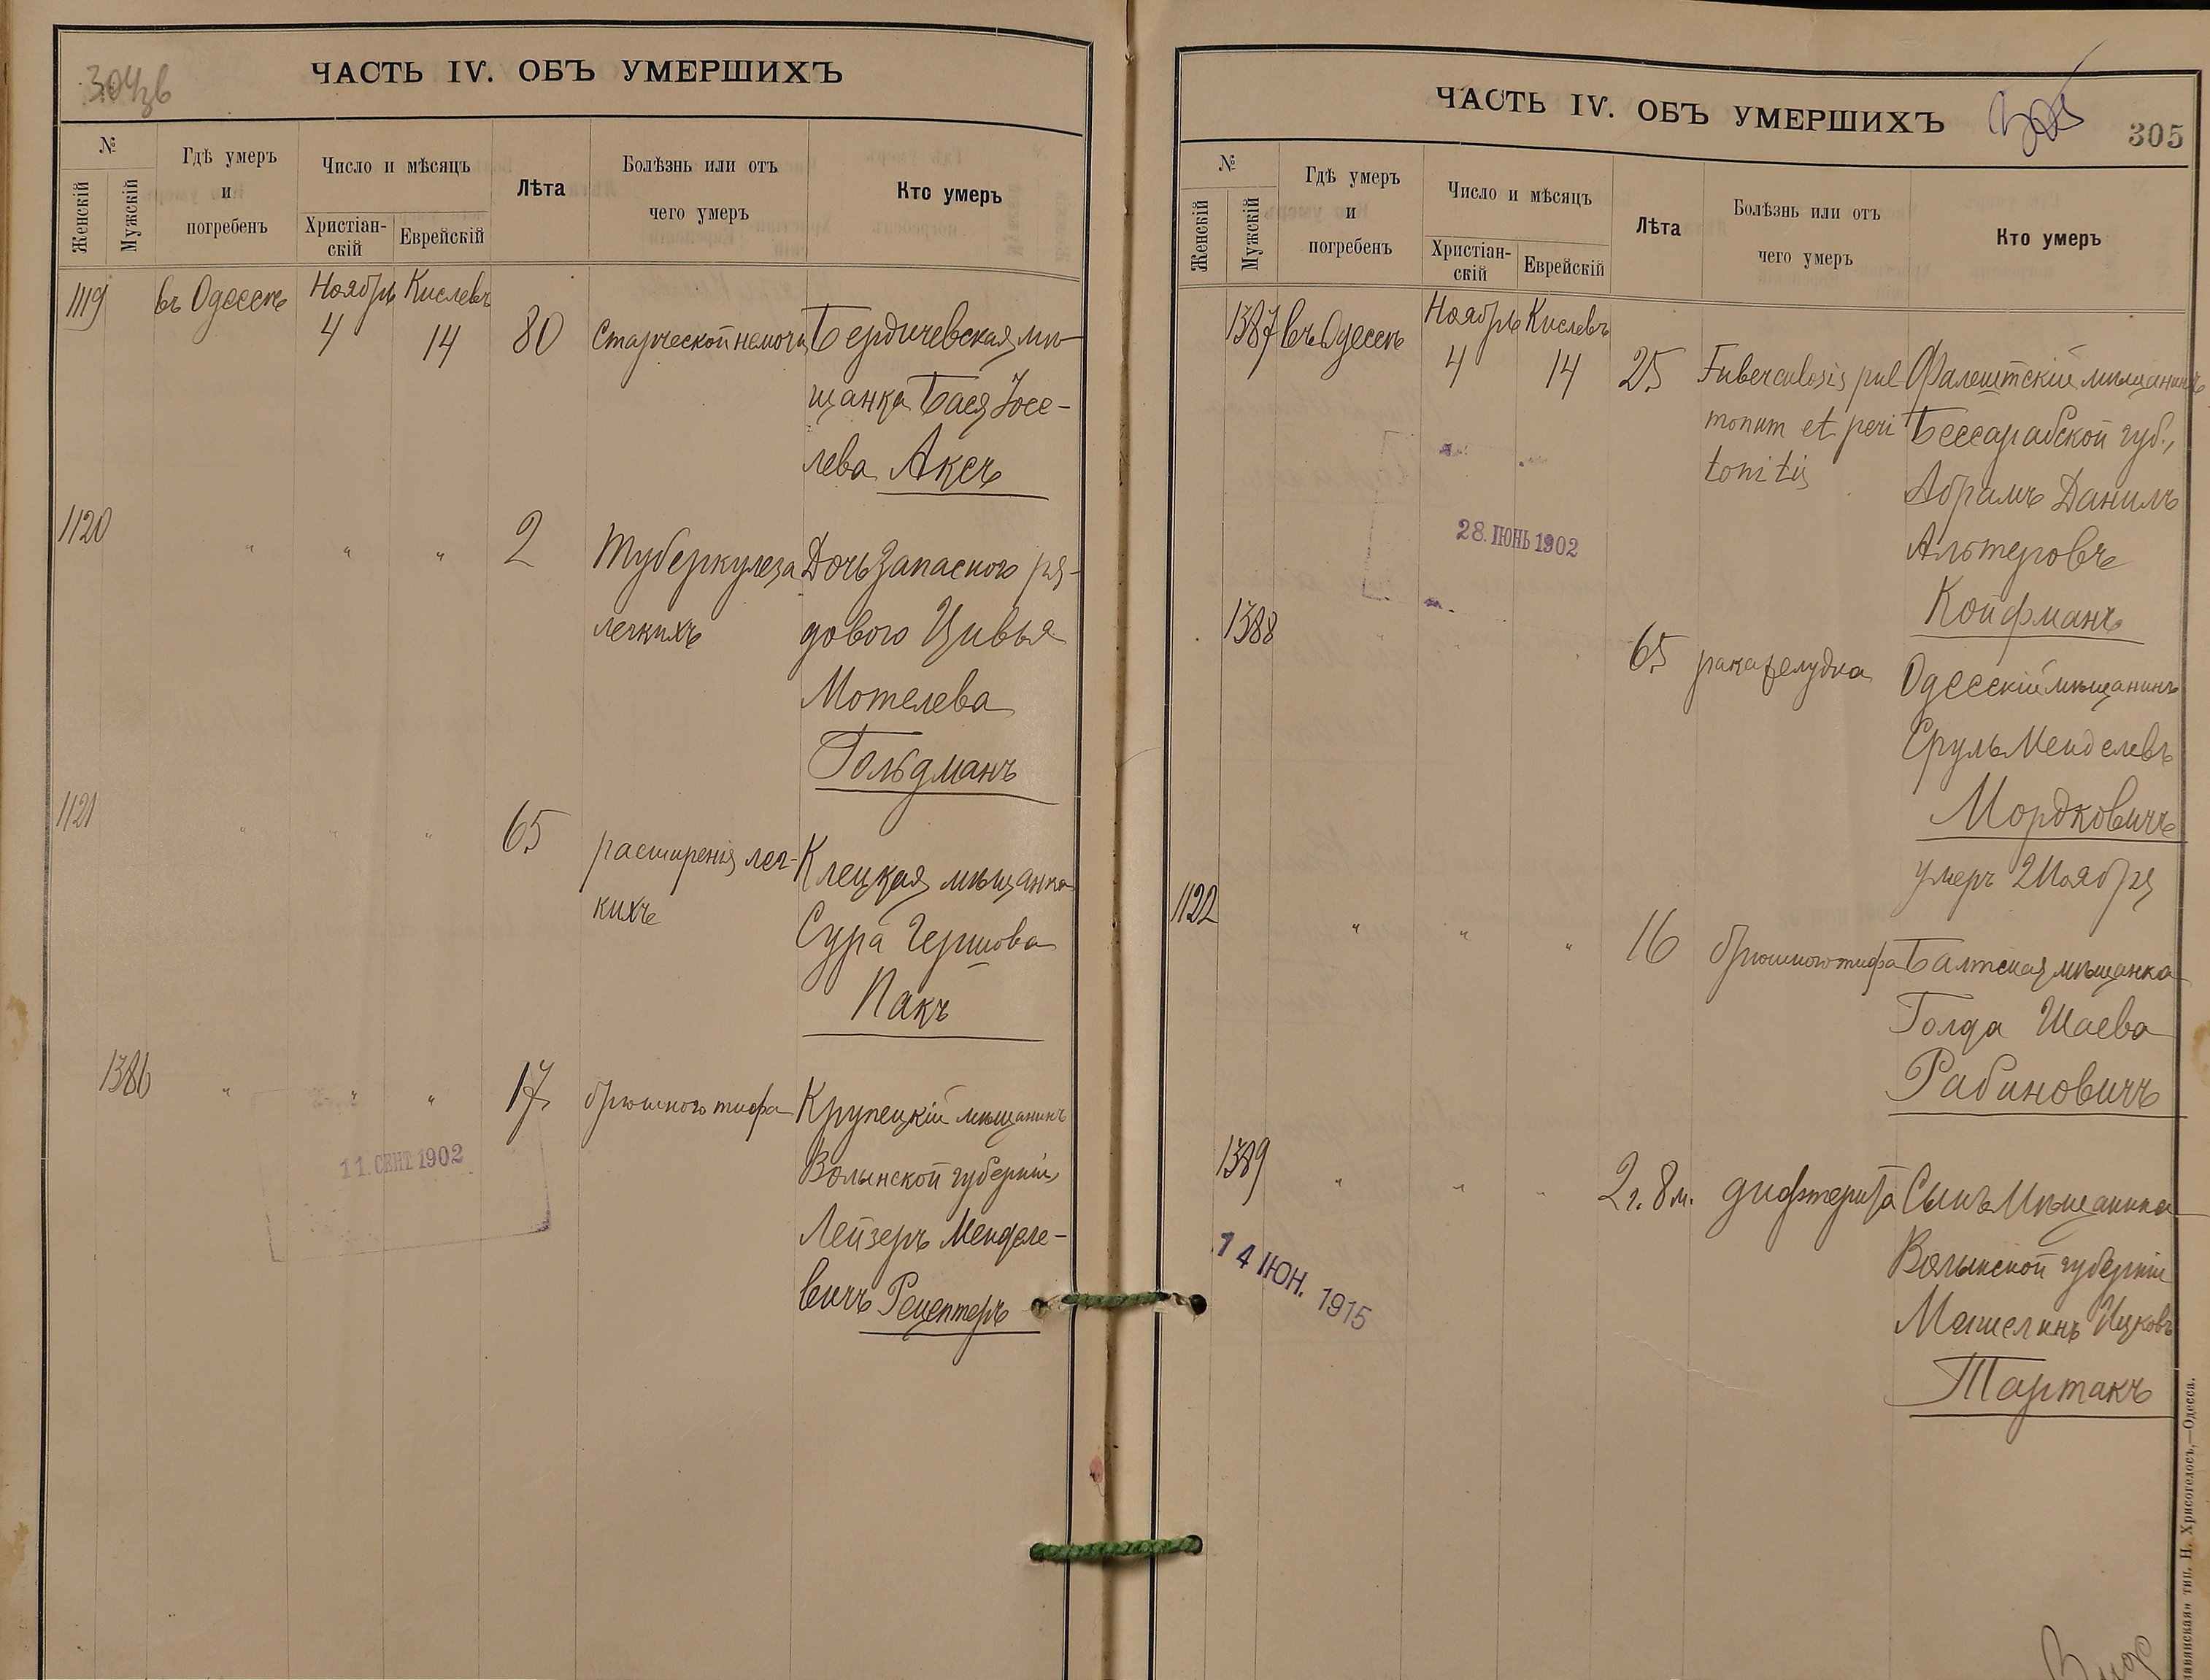 304об
ЧАСТЬ IV. ОБЪ УМЕРШИХЪ
№
Женскій
Мужскій
Гдѣ умеръ
и
погребенъ
Число и мѣсяцъ
Христіан-
скій
Еврейскій
Лѣта
Болѣзнь или отъ
чего умеръ
Кто умеръ
1119 въ Одессѣ Ноябрь Кислевъ
4 14 80 Старческой немочи Бердичевская мѣ-
щанка Бася Іосе-
лева Аксъ
1120 " " " 2 Туберкулеза Дочь запасного ря-
легкихъ дового Цивья
Мотелева
Гольдманъ
1121 " " " 65 расширенія лег- Клецкая мѣщанка
кихъ Сура Гершова
Пакъ
1386 " " " 17 брюшного тифа Крупецкій мѣщанинъ
11. СЕНТ 1902
Волынской губерніи
Лейзеръ Менделе-
вичъ Рецептеръ
ЧАСТЬ IV. ОБЪ УМЕРШИХЪ
305
305
№
Женскій
Мужскій
Гдѣ умеръ
и
погребенъ
Число и мѣсяцъ
Христіан-
скій
Еврейскій
Лѣта
Болѣзнь или отъ
чего умеръ
Кто умеръ
1387 въ Одессѣ Ноябрь Кислевъ
4 14 25 Tuberculosis pul- Фалештскій мѣщанинъ
monum et peri Бессарабской губ.,
tonitis Абрамъ Данилъ
28. ІЮНЬ 1902
Альтеровъ
Койфманъ
1388 " " " 65 рака желудка Одесскій мѣщанинъ
Сруль Менделевъ
Мордковичъ
умеръ 2 Ноября
1122 " " " 16 брюшного тифа Балтская мѣщанка
Голда Шаева
Рабиновичъ
1389 " " " 2 г. 8 м. дифтерита Сынъ Мѣщанина
14 ІЮН. 1915
Волынской губерніи
Машелинъ Ицковъ
Тартакъ
тип. Н. Хрисогелосъ,—Одесса.